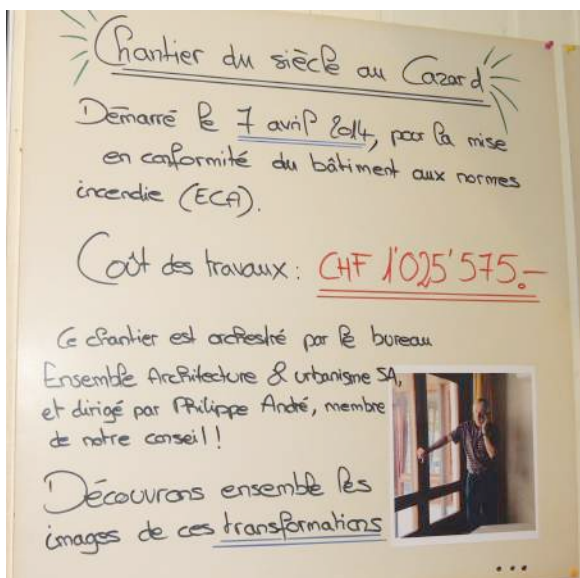 Chantier du siècle au Cazard
Démarré le 7 avril 2014, pour la mise
en conformité du bâtiment aux normes
incendie (ECA).
Coût des travaux : CHF 1'025'575.–
Ce chantier est orchestré par le bureau
Ensemble Architecture & urbanisme SA,
et dirigé par Philippe André, membre
de notre conseil !
Découvrons ensemble les
images de ces transformations
...